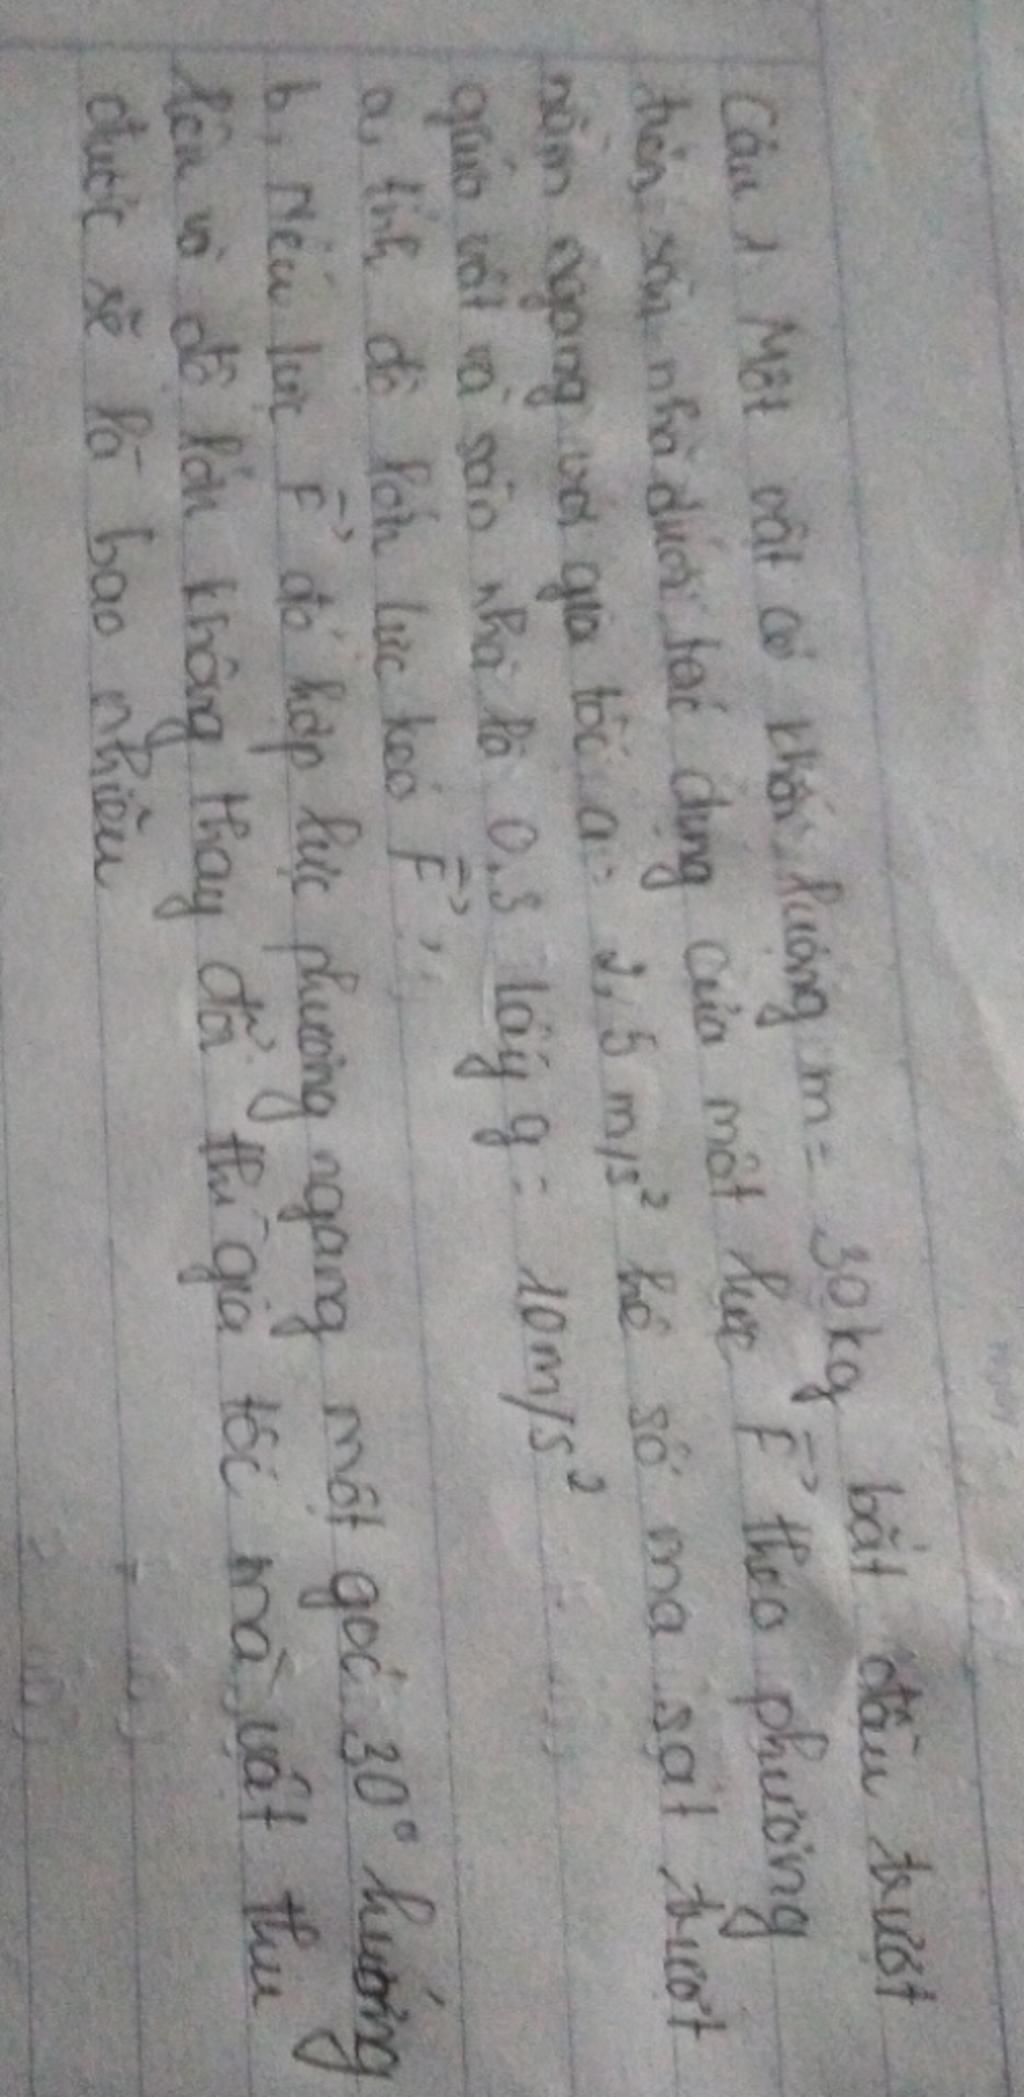 Câu 1. Một vật có khối lượng m = 30kg bắt đầu trượt
trên sàn nhà dưới tác dụng của một lực F theo phương
nằm ngang với gia tốc a = 2,5 m/s² hệ số ma sát trượt
giữa vật và sàn nhà là 0,3 lấy g = 10m/s²
a, tính độ lớn lực kéo F,
b, Nếu lực F đó hợp lực phương ngang một góc 30° hướng
lên và độ lớn không thay đổi thì gia tốc mà vật thu
được sẽ là bao nhiêu